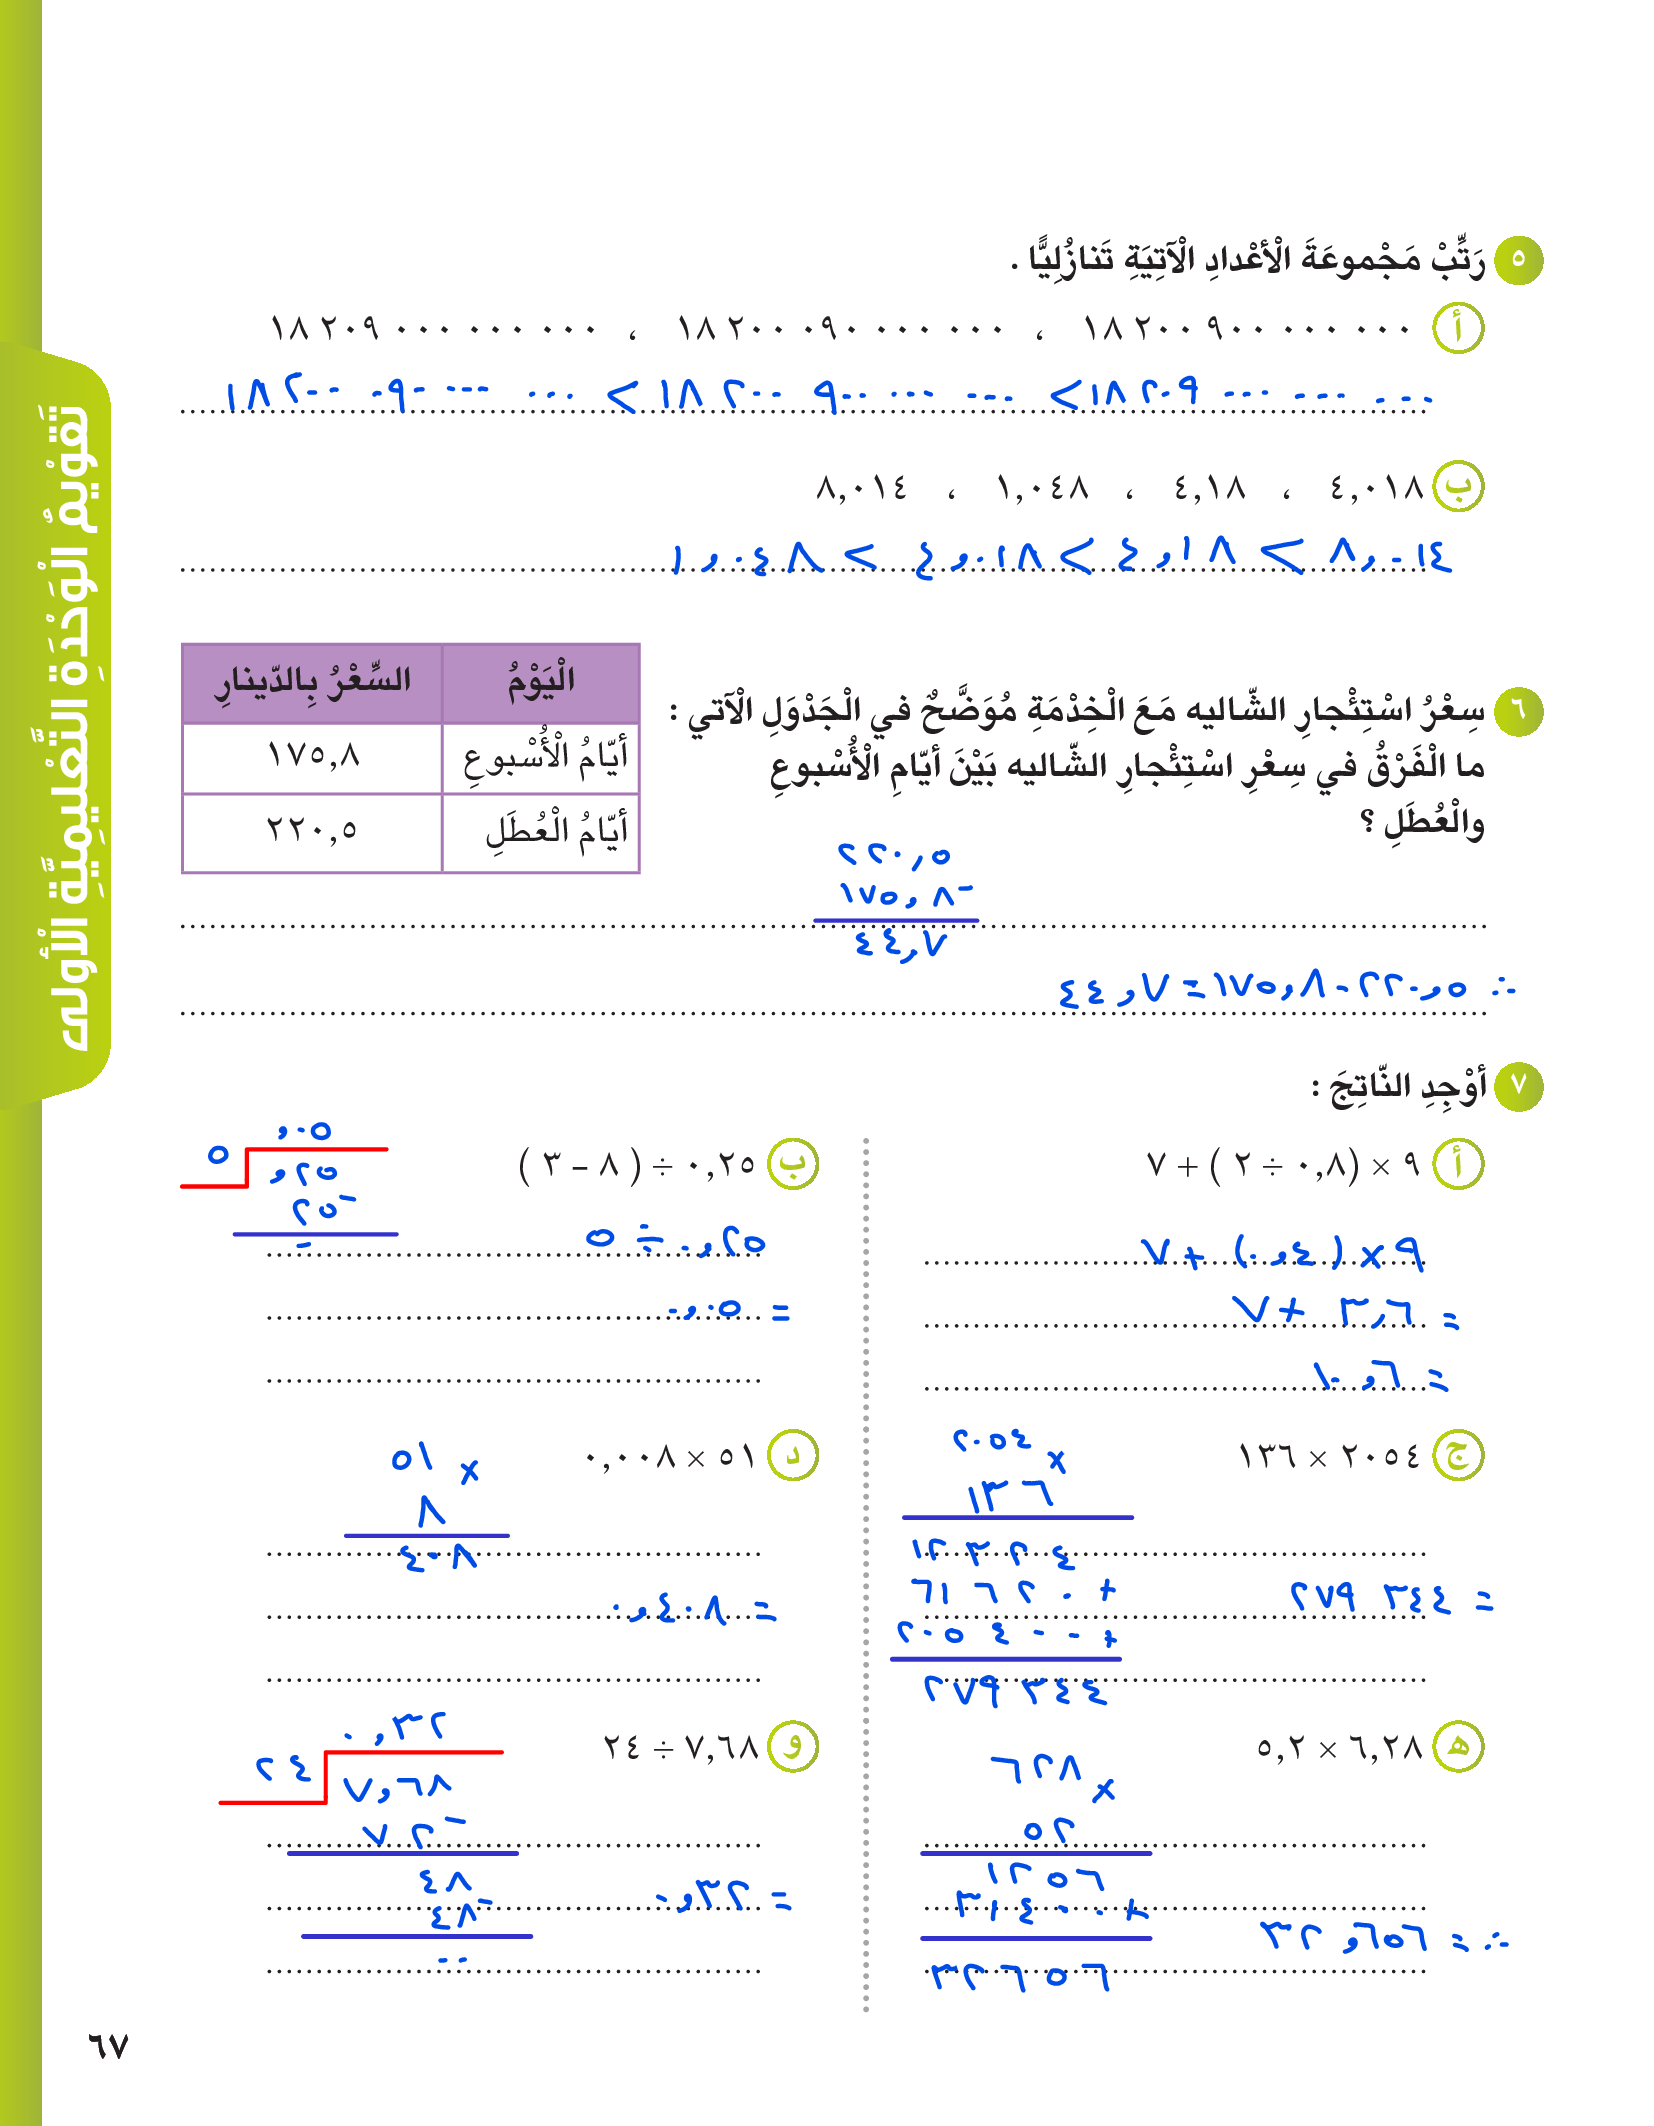 ٥ رَتِّبْ مَجْموعَةَ الْأَعْدادِ الْآتِيَةِ تَنازُلِيًّا .
أ ١٨ ٢٠٠ ٩٠٠ ٠٠٠ ٠٠٠ ، ١٨ ٢٠٠ ٠٩٠ ٠٠٠ ٠٠٠ ، ١٨ ٢٠٩ ٠٠٠ ٠٠٠ ٠٠٠
١٨ ٢٠٩ ٠٠٠ ٠٠٠ ٠٠٠ > ١٨ ٢٠٠ ٩٠٠ ٠٠٠ ٠٠٠ > ١٨ ٢٠٠ ٠٩٠ ٠٠٠ ٠٠٠
ب ٤,٠١٨ ، ٤,١٨ ، ١,٠٤٨ ، ٨,٠١٤
٨,٠١٤ > ٤,١٨ > ٤,٠١٨ > ١,٠٤٨
٦ سِعْرُ اسْتِئْجارِ الشّاليه مَعَ الْخِدْمَةِ مُوَضَّحٌ في الْجَدْوَلِ الْآتي :
ما الْفَرْقُ في سِعْرِ اسْتِئْجارِ الشّاليه بَيْنَ أيّامِ الْأُسْبوعِ
والْعُطَلِ ؟
الْيَوْمُ السِّعْرُ بِالدّينارِ
أيّامُ الْأُسْبوعِ ١٧٥,٨
أيّامُ الْعُطَلِ ٢٢٠,٥
٢٢٠,٥
١٧٥,٨ -
٤٤,٧
∴ ٢٢٠,٥ - ١٧٥,٨ = ٤٤,٧
٧ أوْجِدِ النّاتِجَ :
أ ٩ × (٠,٨ ÷ ٢ ) + ٧
٩ × (٠,٤) + ٧
= ٣,٦ + ٧
= ١٠,٦
ب ٠,٢٥ ÷ ( ٨ – ٣ )
,٠٥
٥ ,٢٥
٢٥ -
٠
٠,٢٥ ÷ ٥
= ٠,٠٥
ج ٢٠٥٤ × ١٣٦
٢٠٥٤ ×
١٣٦
١٢ ٣ ٢ ٤
٦١ ٦ ٢ ٠ +
٢٠٥ ٤ ٠ ٠ +
٢٧٩ ٣٤٤
= ٢٧٩ ٣٤٤
د ٥١ × ٠,٠٠٨
٥١ ×
٨
٤٠٨
= ٠,٤٠٨
ه ٦,٢٨ × ٥,٢
٦٢٨ ×
٥٢
١٢٥٦
٣١٤٠٠ +
٣٢٦٥٦
∴ = ٣٢,٦٥٦
و ٧,٦٨ ÷ ٢٤
٠,٣٢
٢٤ ٧,٦٨
٧٢ -
٤٨
٤٨ -
٠٠
= ٠,٣٢
تَقْويمُ الْوَحْدَةِ التَّعْليمِيَّةِ الْأولى
٦٧